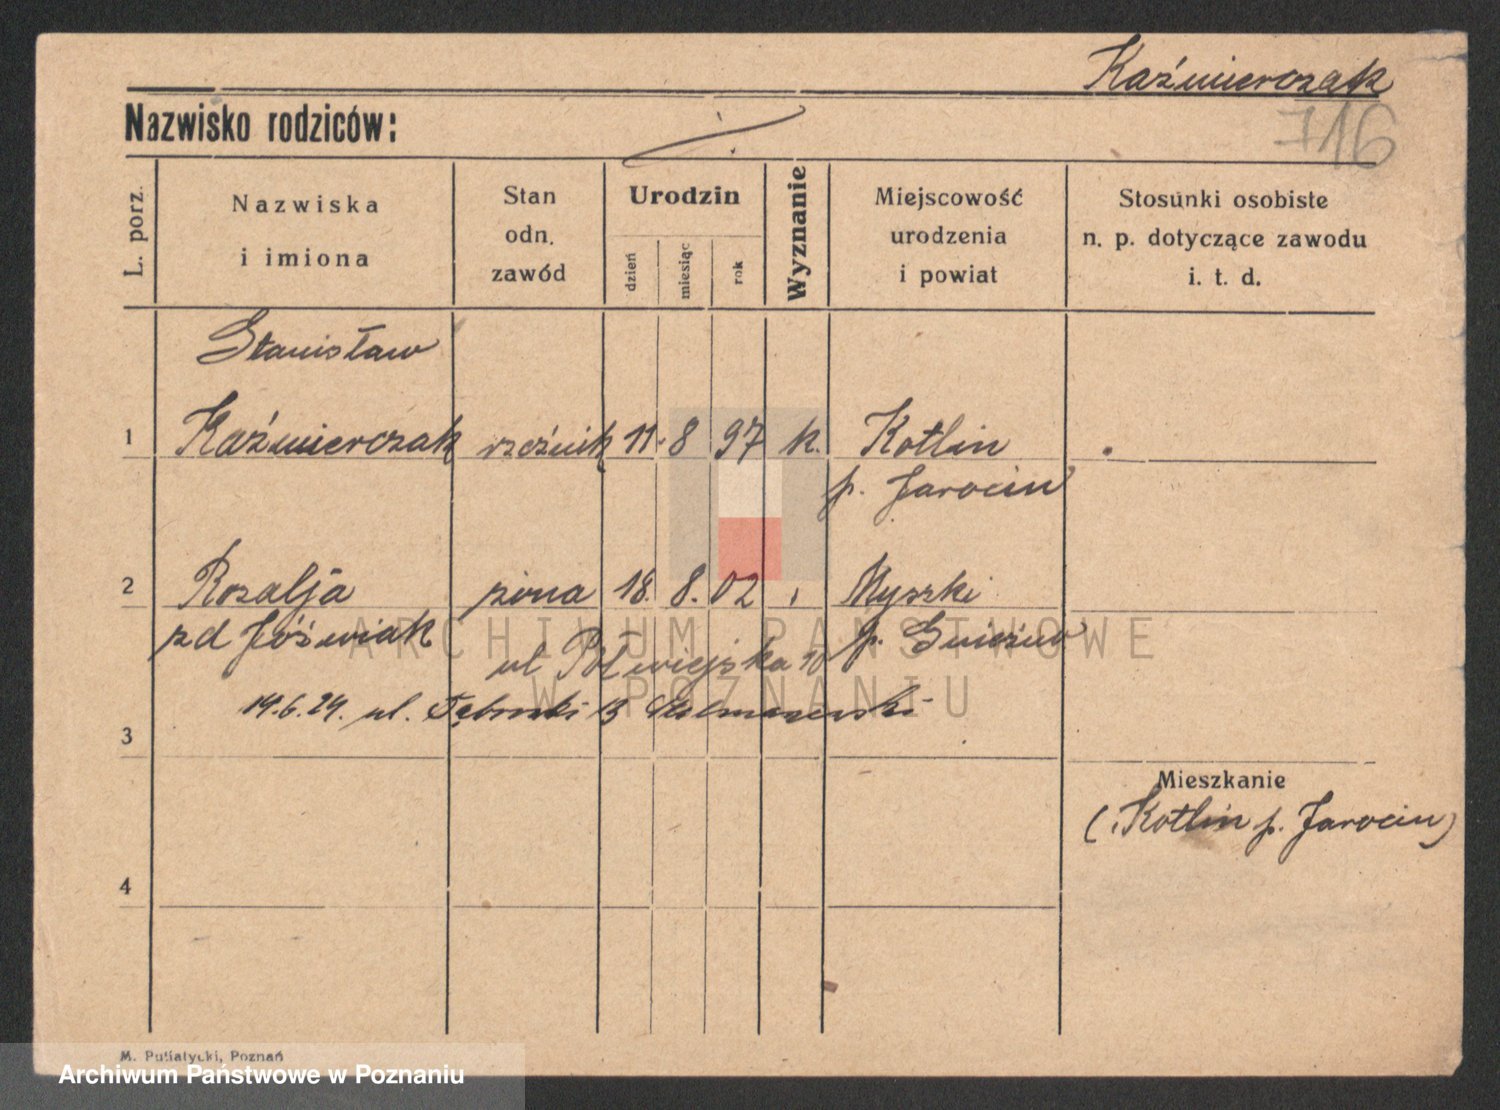 Kaźmierczak
716
Nazwisko rodziców:
L. porz.
Nazwiska
i imiona
Stan
odn.
zawód
Urodzin
dzień
miesiąc
rok
Wyznanie
Miejscowość
urodzenia
i powiat
Stosunki osobiste
n. p. dotyczące zawodu
i. t. d.
Stanisław
1 Kaźmierczak rzeźnik 11. 8 97 k. Kotlin
p. Jarocin
2 Rozalja żona 18. 8. 02 Myszki
zd Jóświak p. Gniezno
ul Półwiejska 10
19.6.29. ul.
3
Mieszkanie
(Kotlin p. Jarocin)
4
M. Putiatycki, Poznań
ARCHIWUM PAŃSTWOWE
W POZNANIU
Archiwum Państwowe w Poznaniu